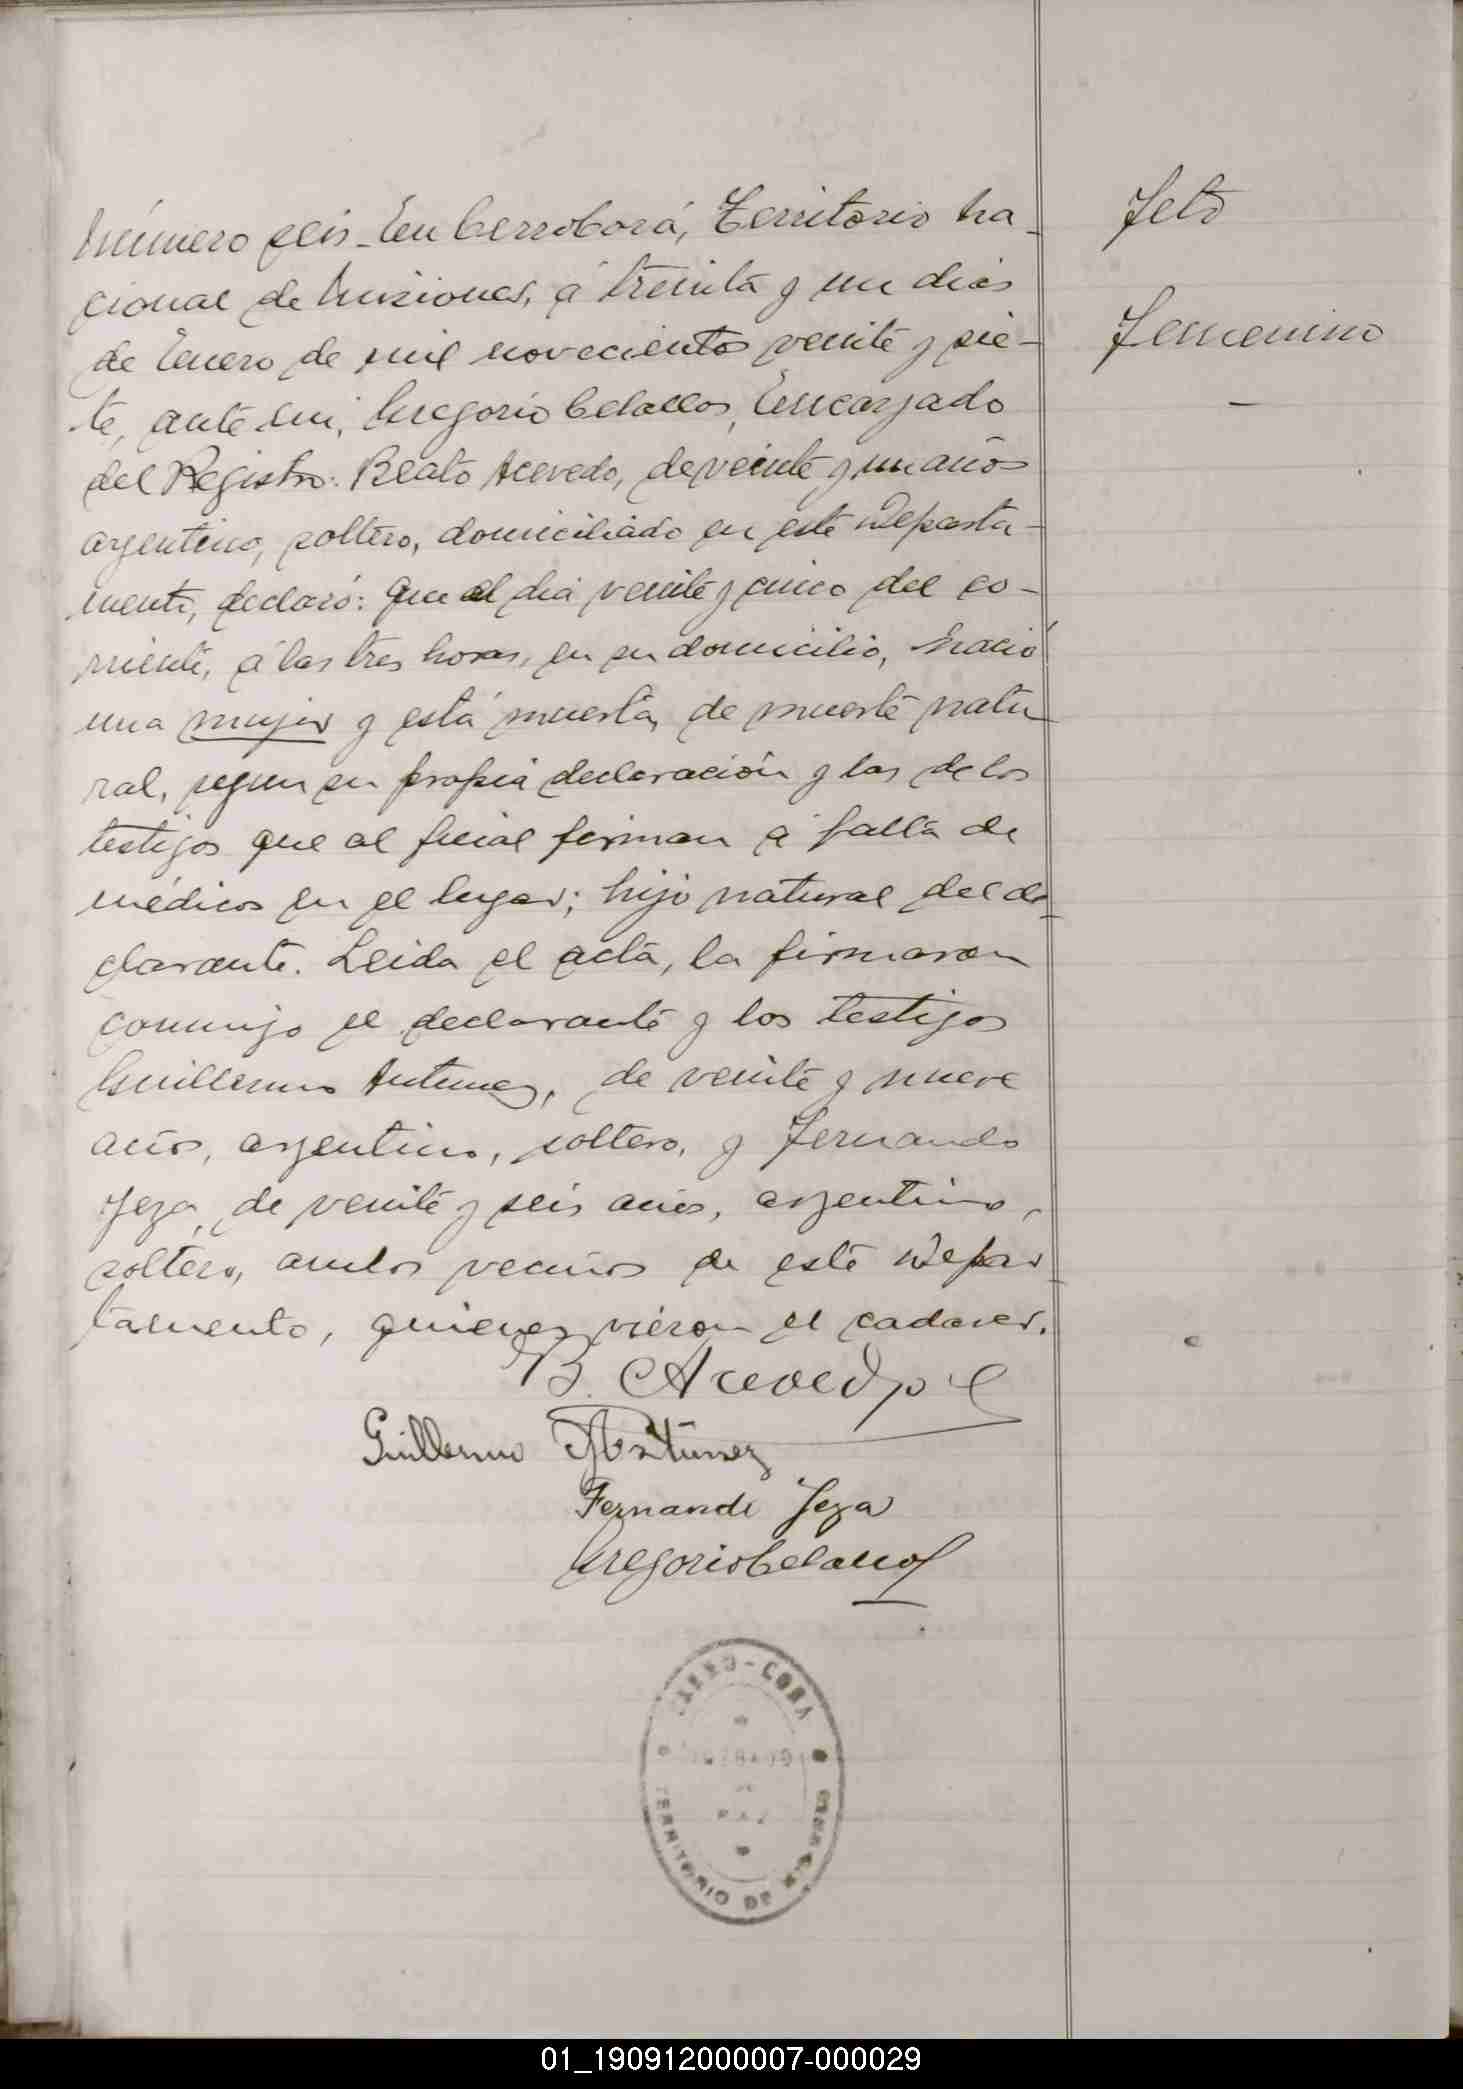 Número seis. En Cerrocorá, Territorio Na-
cional de Misiones, á treinta y un dias
de Enero de mil novecientos veinte y sie-
te, ante mi, Gregorio Celallos, Encargado
del Registro: Beato Acevedo, de veinte y un años
argentino, soltero, domiciliado en este Departa-
mento, declaró: Que el dia veinte y cinco del co-
rriente, á las tres horas, en su domicilio, nació
una mujer y está muerta, de muerte natu-
ral, segun su propia declaración y las de los
testigos que al final firman á falta de
médicos en el lugar; hijo natural del de-
clarante. Leida el acta, la firmaron
conmigo el declarante y los testigos
Guillermo Antunez, de veinte y nueve
años, argentino, soltero, y Fernando
Yeza, de veinte y seis años, argentino,
soltero, ambos vecinos de este Depar-
tamento, quienes vieron el cadaver.
B. Acevedo
Guillermo Antunez
Fernando Yeza
Gregorio Celallos
Feto
Femenino
CERRO-CORA
JUZGADO
DE
PAZ
TERRITORIO DE MISIONES
01_190912000007-000029